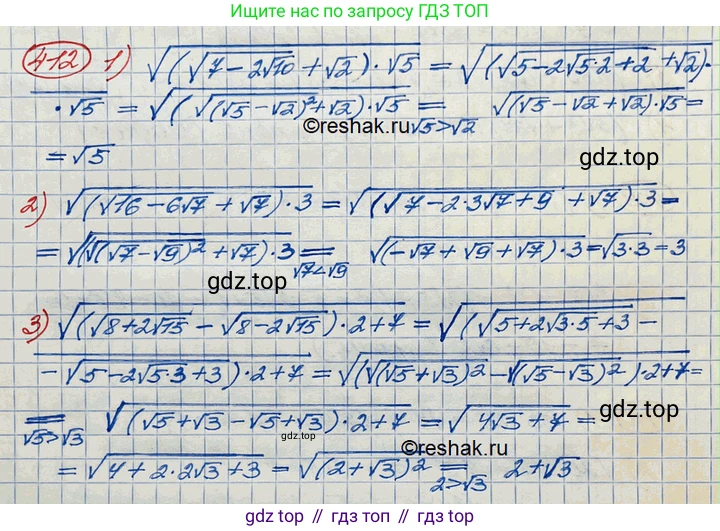 Ищите нас по запросу ГДЗ ТОП
412 1) √((√(7-2√10)+√2)·√5) = √((√(5-2√5·2+2)+√2)·
·√5) = √((√((√5-√2)²)+√2)·√5) = √5>√2 √((√5-√2+√2)·√5) =
©reshak.ru
= √5
gdz.top
2) √((√(16-6√7)+√7)·3) = √((√(7-2·3√7+9)+√7)·3) =
= √((√((√7-√9)²)+√7)·3) = √7<√9 √((-√7+√9+√7)·3) = √(3·3) = 3
gdz.top
3) √((√(8+2√15)-√(8-2√15))·2+7) = √((√(5+2√3·5+3)-
-√(5-2√5·3+3))·2+7) = √((√((√5+√3)²)-√((√5-√3)²))·2+7) =
= √5>√3 √((√5+√3-√5+√3)·2+7) = √(4√3+7) =
gdz.top
gdz.top
©reshak.ru
= √(4+2·2√3+3) = √((2+√3)²) = 2>√3 2+√3
gdz.top // гдз.топ // gdz.top